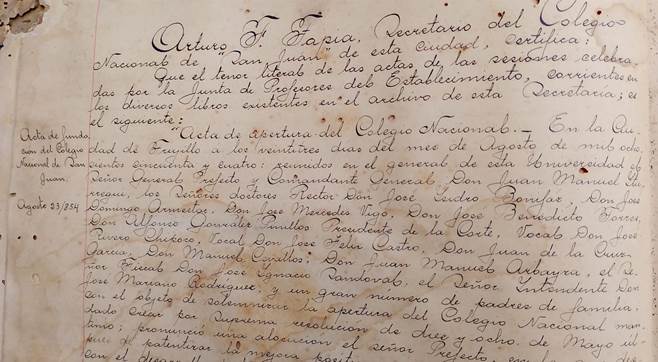 Arturo F. Tapia, Secretario del Colegio
Nacional de "San Juan" de esta ciudad, certifica:
Que el tenor literal de las actas de las sesiones celebra-
das por la Junta de Profesores del Establecimiento, corrientes en
los diversos libros existentes en el archivo de esta Secretaría; es
el siguiente:
Acta de funda-
ción del Colegio
Nacional de San
Juan.
Agosto 23/854
"Acta de apertura del Colegio Nacional.- En la Ciu-
dad de Trujillo a los veintitres dias del mes de Agosto de mil ocho-
cientos cincuenta y cuatro: reunidos en el general de esta Universidad el
Señor General Prefecto y Comandante General, Don Juan Manuel
los Señores doctores Rector Don José Isidro Bonifaz, Don José
Domingo Armestar, Don José Mercedes Vigo, Don José Benedicto Torres,
Don Alfonso González Pinillos Presidente de la Corte, Vocal Don José
Rivero Vocal Don José Felix Castro, Don Juan de la Cruz
García, Don Manuel Cavallos; Don Juan Manuel el Se-
ñor Fiscal Don José Ignacio Sandoval, el Señor Intendente Don
José Mariano Rodriguez; y un gran número de padres de familia,
con el objeto de solemnizar la apertura del Colegio Nacional man-
dado crear por suprema resolucion de diez y ocho de Mayo úl-
timo; pronunció una alocucion el señor Prefecto,
de patentizar la mejora
con el